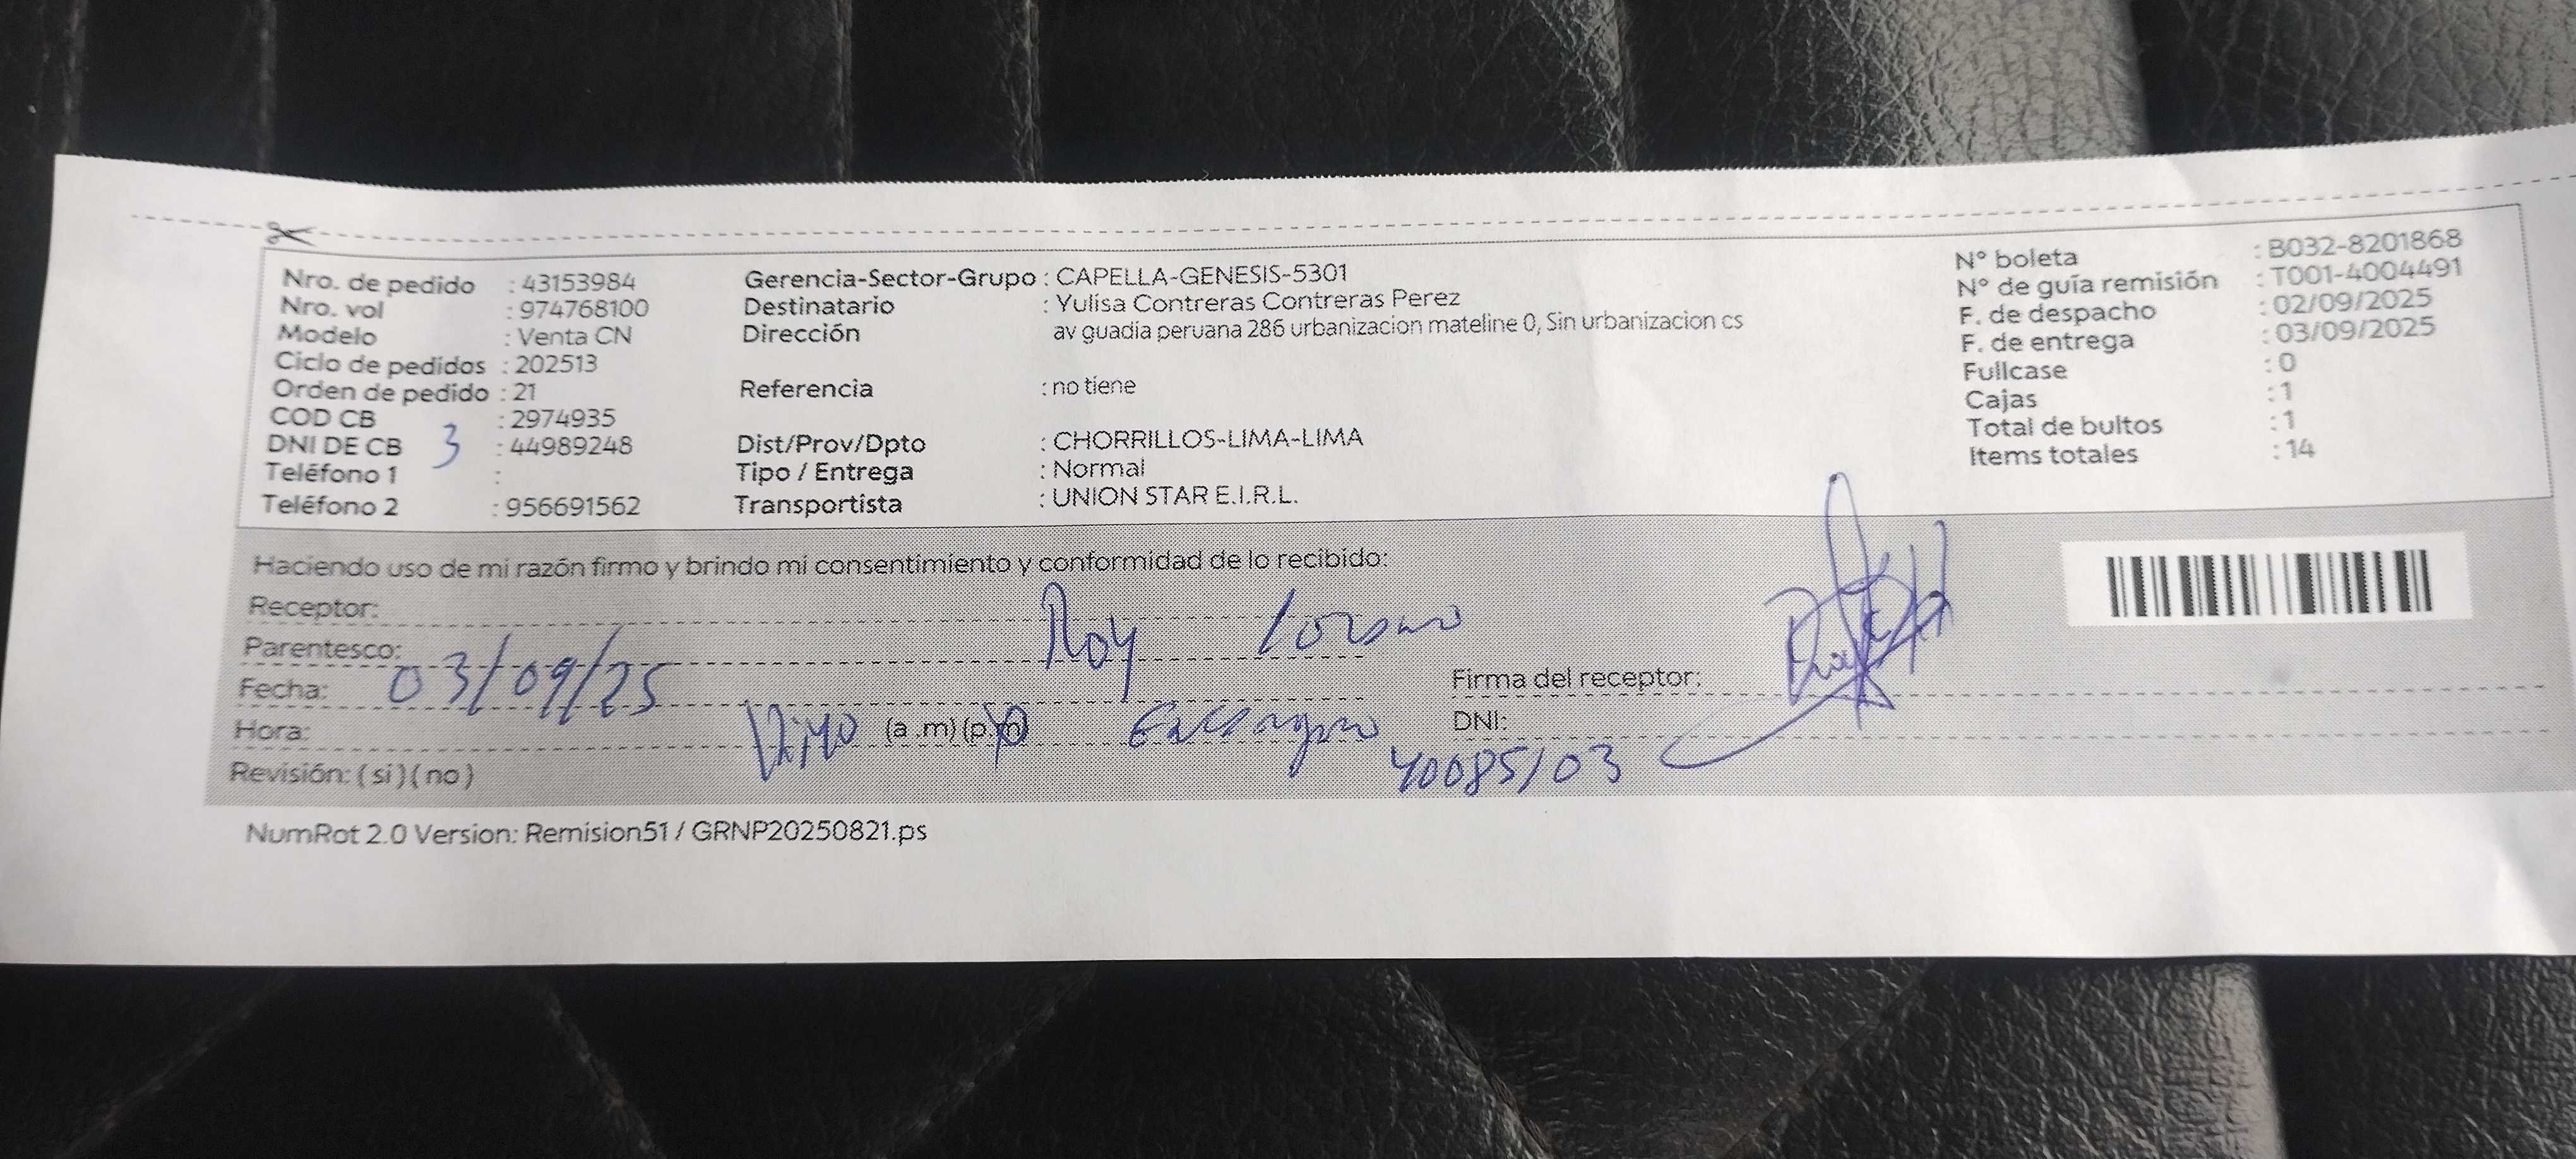 Nro. de pedido : 43153984
Nro. vol : 974768100
Modelo : Venta CN
Ciclo de pedidos : 202513
Orden de pedido : 21
COD CB : 2974935
DNI DE CB 3 : 44989248
Teléfono 1 :
Teléfono 2 : 956691562
Gerencia-Sector-Grupo : CAPELLA-GENESIS-5301
Destinatario : Yulisa Contreras Contreras Perez
Dirección av guadia peruana 286 urbanizacion mateline 0, Sin urbanizacion cs
Referencia : no tiene
Dist/Prov/Dpto : CHORRILLOS-LIMA-LIMA
Tipo / Entrega : Normal
Transportista : UNION STAR E.I.R.L.
N° boleta : B032-8201868
N° de guía remisión : T001-4004491
F. de despacho : 02/09/2025
F. de entrega : 03/09/2025
Fullcase : 0
Cajas : 1
Total de bultos : 1
Items totales : 14
Haciendo uso de mi razón firmo y brindo mi consentimiento y conformidad de lo recibido:
Receptor:
Roy
Parentesco:
Fecha: 03/09/25
Hora: (a .m) (p.m)
Revisión: ( si ) ( no )
Firma del receptor:
DNI:
40085103
NumRot 2.0 Version: Remision51 / GRNP20250821.ps